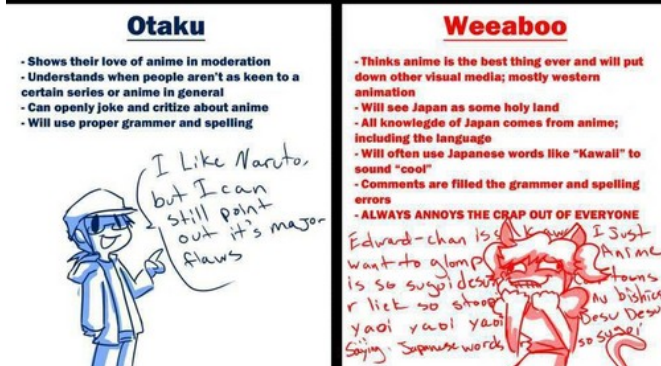 Otaku
- Shows their love of anime in moderation
- Understands when people aren't as keen to a
certain series or anime in general
- Can openly joke and critize about anime
- Will use proper grammer and spelling
I Like Naruto,
but I can
still point
out it's major
flaws
Weeaboo
- Thinks anime is the best thing ever and will put
down other visual media; mostly western
animation
- Will see Japan as some holy land
- All knowlegde of Japan comes from anime;
including the language
- Will often use Japanese words like "Kawaii" to
sound "cool"
- Comments are filled the grammer and spelling
errors
- ALWAYS ANNOYS THE CRAP OUT OF EVERYONE
Edward-chan is I Just
want to glomp Anime
is so sugoi desu
r liek so stoop my bishies
yaoi yaoi yaoi Desu Desu
Saying Japanese words so sugoi